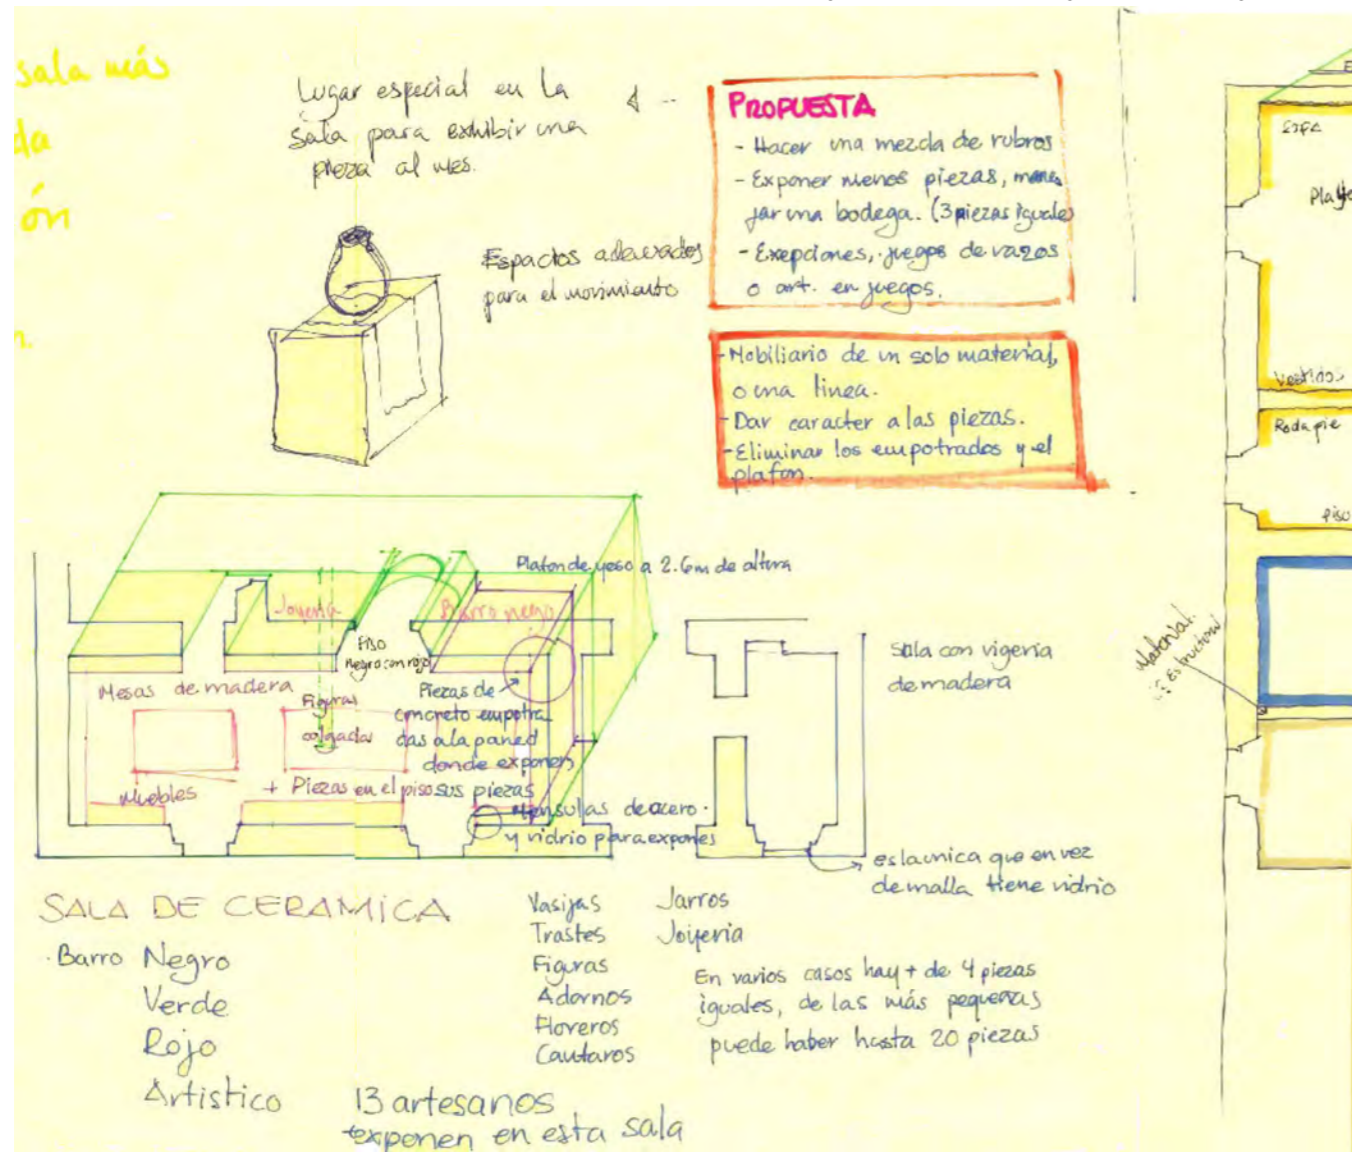 sala más
da
ón
n.
Lugar especial en la
sala para exhibir una
pieza al mes.
PROPUESTA
- Hacer una mezcla de rubros
- Exponer menos piezas, mane
jar una bodega. (3 piezas iguales)
- Exepciones, juegos de vazos
o art. en juegos.
Espacios adecuados
para el movimiento
- Mobiliario de un solo material,
o una linea.
- Dar caracter a las piezas.
- Eliminar los empotrados y el
plafon.
Plafon de yeso a 2.6m de altura
Joyeria
Barro negro
Piso
negro con rojo
Mesas de madera
Figuras
colgadas
Piezas de
concreto empotra
das a la pared
donde exponen
sus piezas
Muebles
+ Piezas en el piso
Mensulas de acero
y vidrio para expones
Sala con vigeria
de madera
es la unica que en vez
de malla tiene vidrio
SALA DE CERAMICA
· Barro Negro
Verde
Rojo
Artistico
13 artesanos
exponen en esta sala
Vasijas
Trastes
Figuras
Adornos
Floreros
Cantaros
Jarros
Joyeria
En varios casos hay + de 4 piezas
iguales, de las más pequeñas
puede haber hasta 20 piezas
Vestidos
Rodapie
Piso
Material